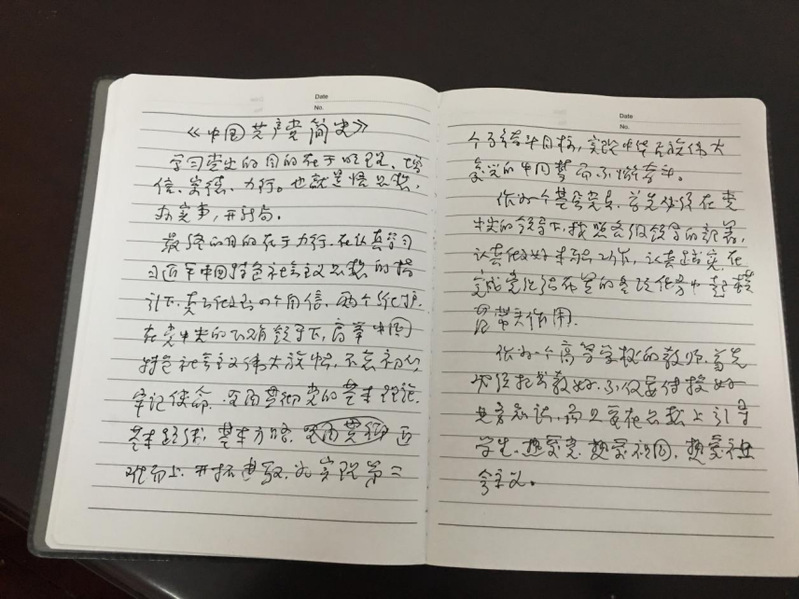 Date
No.
《中国共产党简史》
学习党史的目的在于明理、增
信、崇德、力行。也就是悟思想,
办实事,开新局。
最终的目的在于力行。在认真学习
习近平中国特色社会主义思想的指
引下,真正做到四个自信,两个维护,
在党中央的正确领导下,高举中国
特色社会主义伟大旗帜,不忘初心
牢记使命,全面贯彻党的基本理论,
基本路线,基本方略,全面贯彻
而上,开拓进取,为实现第二
Date
No.
个百年奋斗目标,实现中华民族伟大
复兴的中国梦而不懈奋斗。
作为一个基层党员,首先必须在党
中央的领导下,按照各级领导的部署,
认真做好本职工作,认真踏实,在
完成党组织布置的各项任务中起模
范带头作用。
作为一个高等学校的教师,首先
必须把书教好,不仅要传授好
业务知识,而且要在思想上引导
学生,热爱党,热爱祖国,热爱社
会主义。